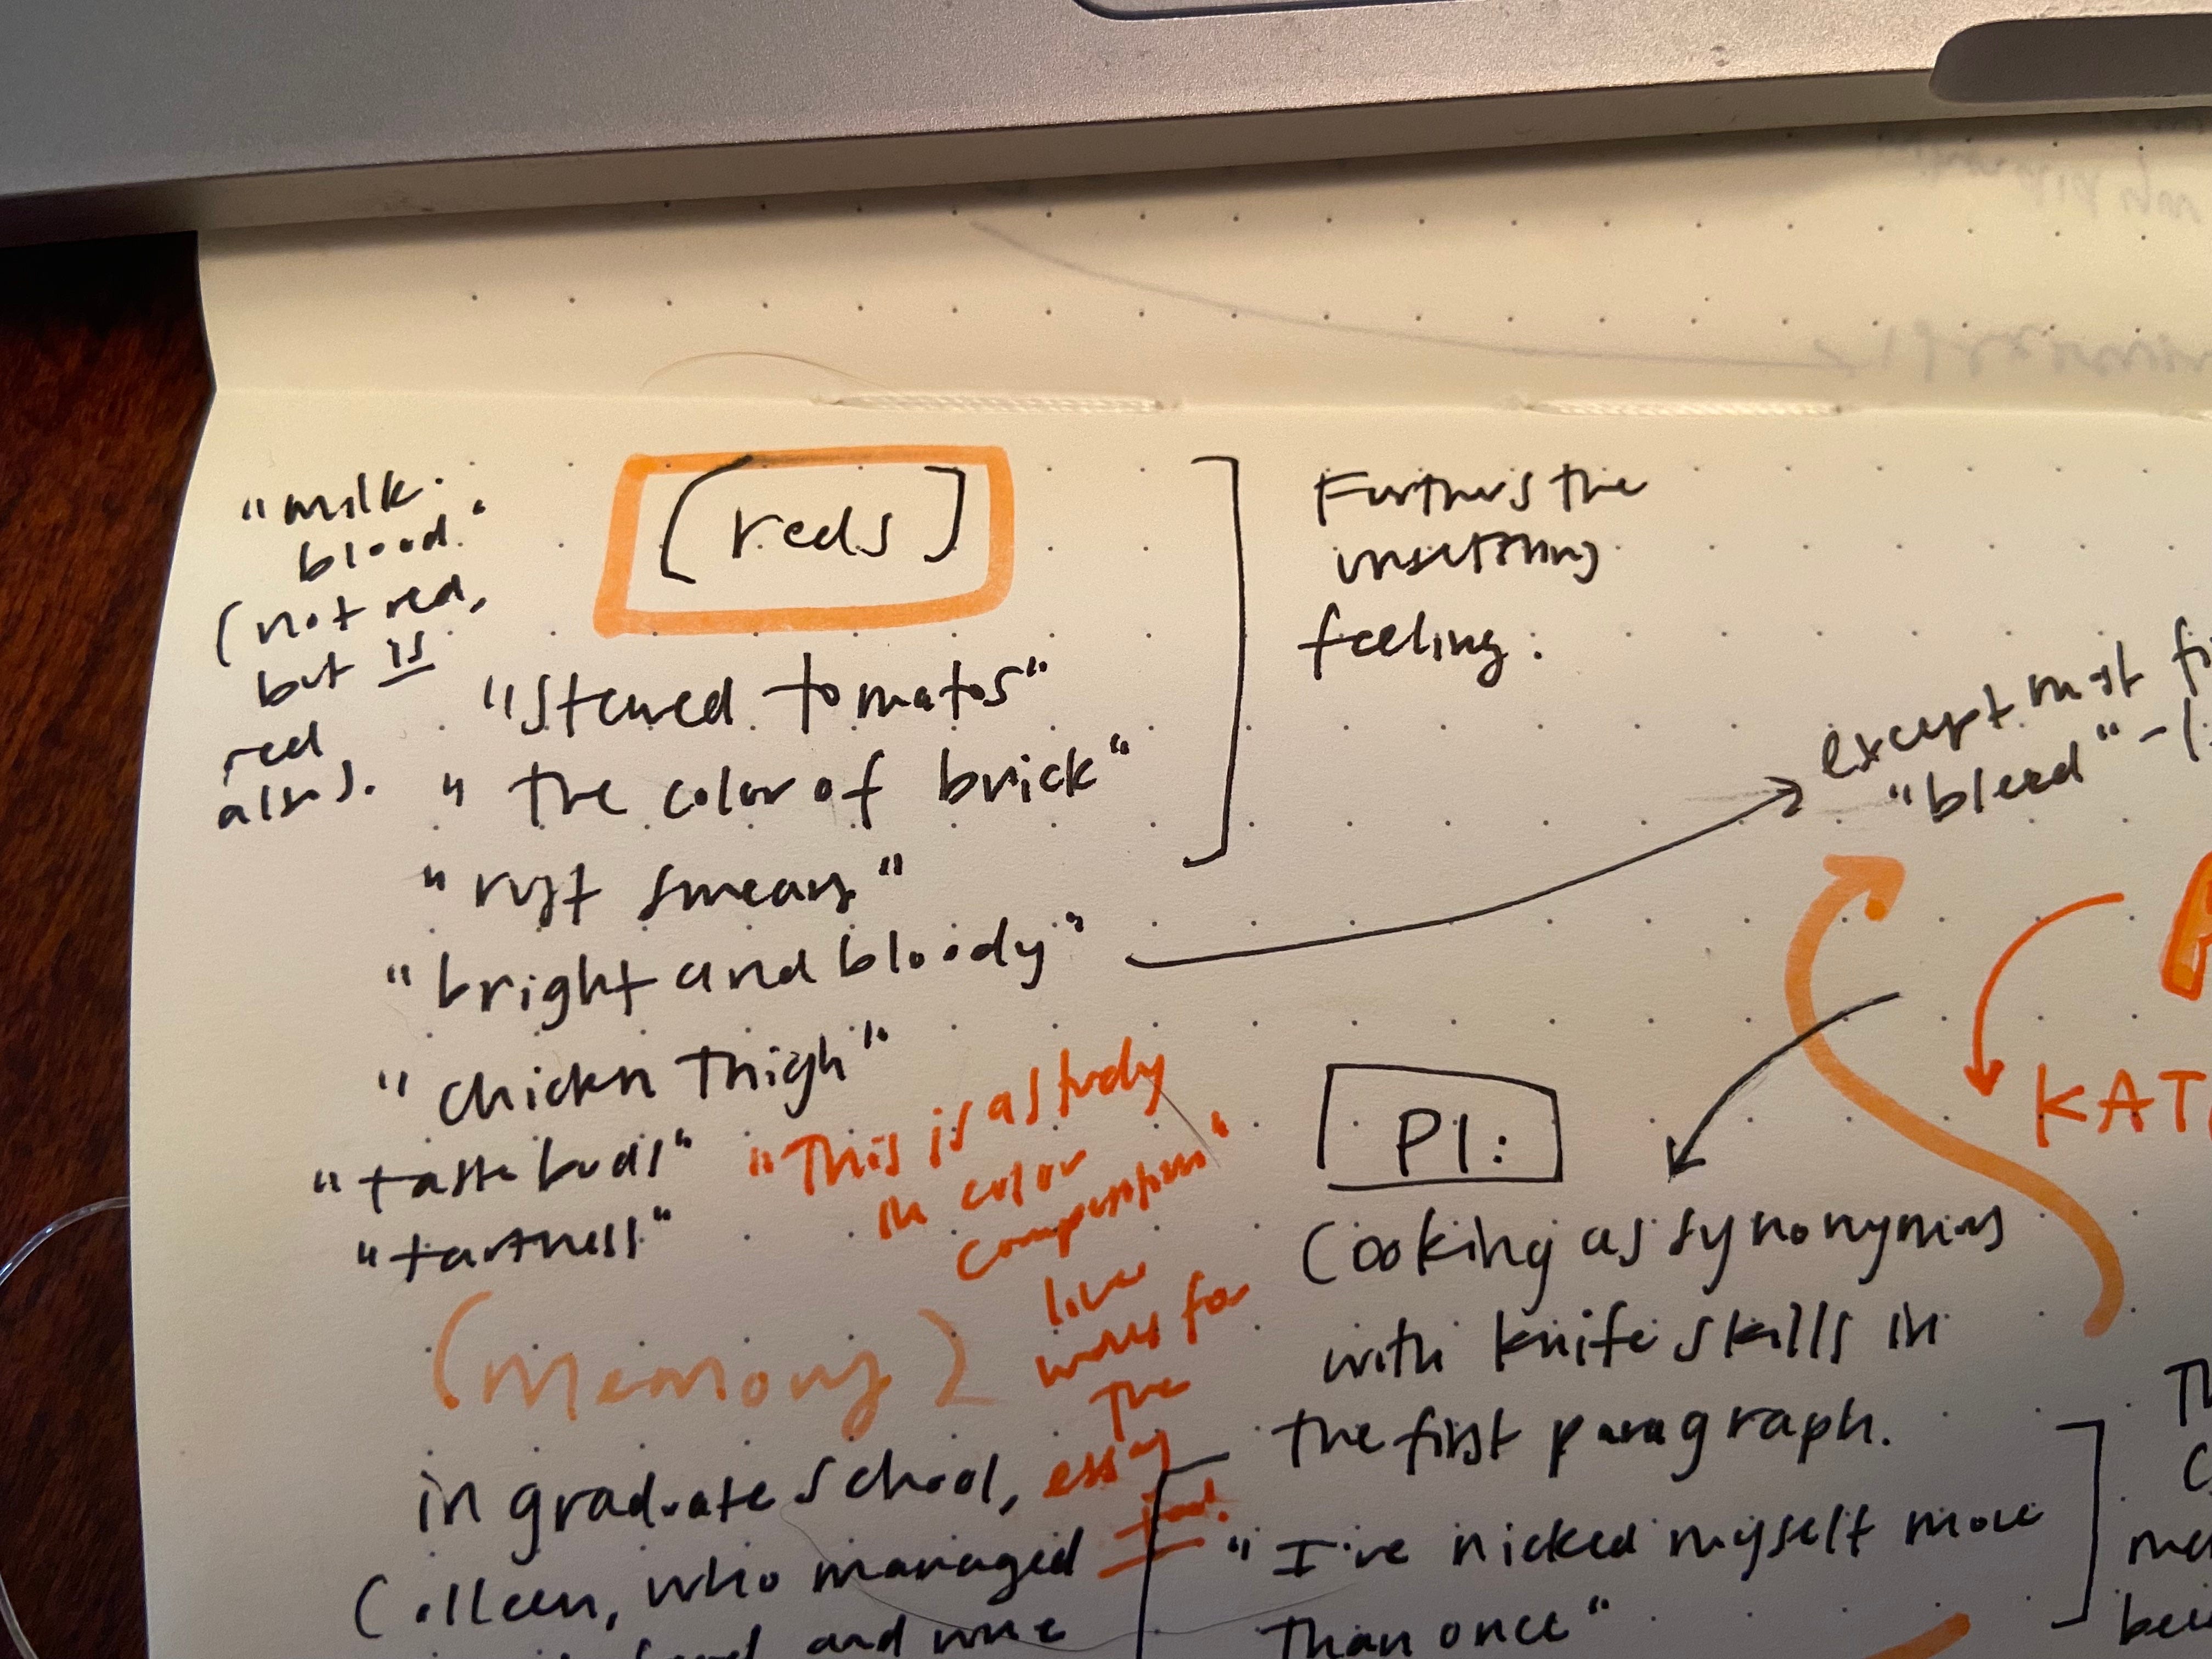 "milk.
blood."
(not red,
but is
red
also).
[reds]
"stewed tomatos"
"the color of brick"
"rust smears"
"bright and bloody"
"chickn thigh"
"taste buds"
"tartness"
Furthers the
unsettling
feeling:
except most
"bleed" - (
"This is a study
in color
composition"
line
works for
the
essay
too!
(memory)
in graduate school,
Colleen, who managed
and wine
P1:
Cooking as synonymous
with knife skills in
the first paragraph.
"I've nicked myself more
than once"